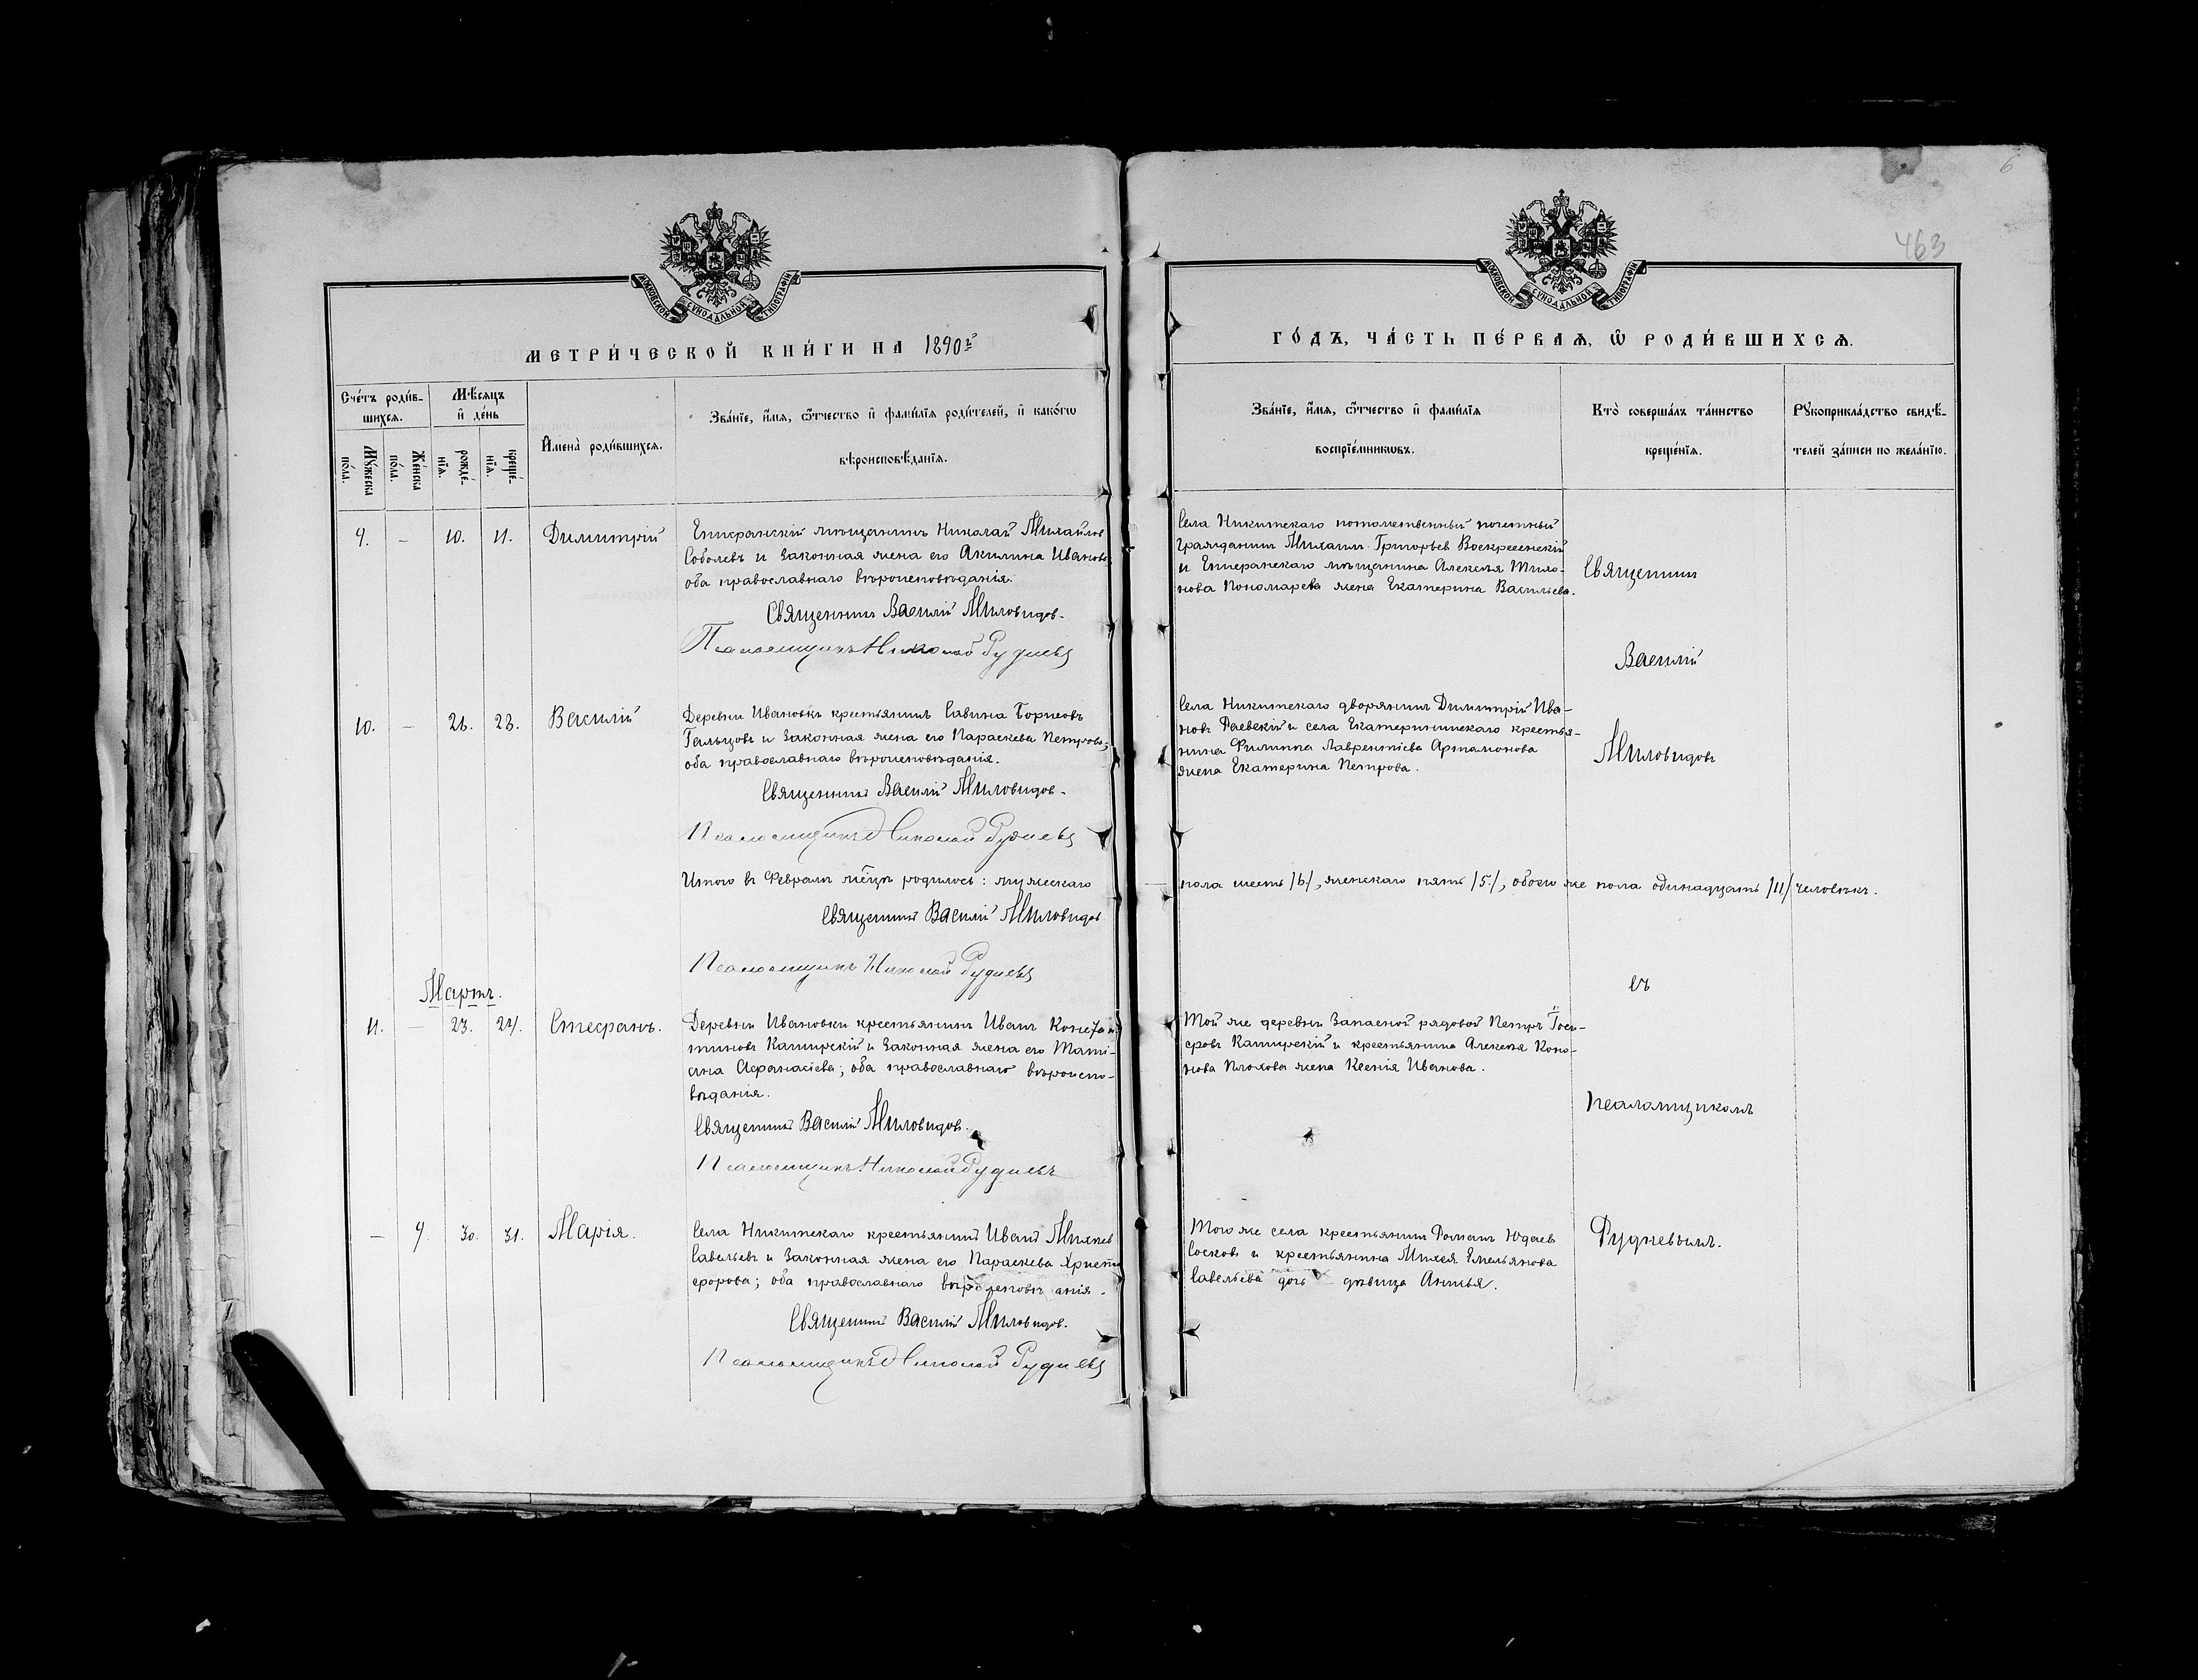 6
463
МОСКОВСКОЙ СѴНОДАЛЬНОЙ ТИПОГРАФІИ
МОСКОВСКОЙ СѴНОДАЛЬНОЙ ТИПОГРАФІИ
МЕТРИ́ЧЕСКОЙ КНИ́ГИ НА 1890 г
ГО́ДЪ, ЧА́СТЬ ПЕ́РВАѦ, Ѽ РОДИ́ВШИХСѦ.
Сче́тъ роди́в-
шихсѧ.
Мꙋ́жеска по́ла.
Же́нска по́ла.
Мѣ́сѧцъ
и҆ де́нь
рожде́-
нїѧ.
креще́-
нїѧ.
И҆мена̀ роди́вшихсѧ.
Зва́нїе, и҆́мѧ, ѻ҆́тчество и҆ фами́лїѧ роди́телей, и҆ како́гѡ
вѣроисповѣ́данїѧ.
Зва́нїе, и҆́мѧ, ѻ҆́тчество и҆ фами́лїѧ
воспрїе́мникѡвъ.
Кто̀ соверша́лъ та́инство
креще́нїѧ.
Рꙋкоприкла́дство свидѣ́-
телей за́писи по жела́нїю.
9. — 10. 11. Димитрій
Епифанскій мѣщанинъ Николай Михайлов
Соболевъ и законная жена его Акилина Иванова
оба православнаго вѣроисповѣданія.
Священникъ Василій Миловидовъ.
Псаломщикъ Николай Рудневъ
Села Никитскаго потомственный почетный
гражданинъ Михаилъ Григорьевъ Воскресенскій
и Епифанскаго мѣщанина Алексѣя Тихо-
нова Пономарева жена Екатерина Васильева.
Священникъ
Василій
Миловидовъ
10. — 21. 23. Василій
Деревни Ивановки крестьянинъ Савина Борисовъ
Гальцовъ и законная жена его Параскева Петрова;
оба православнаго вѣроисповѣданія.
Священникъ Василій Миловидовъ.
Псаломщикъ Николай Рудневъ
Села Никитскаго дворянинъ Димитрій Ива-
новъ Раевскій и села Екатерининскаго крестья-
нина Филиппа Лаврентіева Артамонова
жена Екатерина Петрова.
Итого въ Февралѣ мѣсцѣ родилось: мужескаго
пола шесть /6/, женскаго пять /5/, обоего же пола одинадцать /11/ человѣкъ.
Священникъ Василій Миловидовъ
Псаломщикъ Николай Рудневъ
Мартъ.
11. — 23. 24. Стефанъ.
Деревни Ивановки крестьянинъ Иванъ Констан-
тиновъ Каширскій и законная жена его Тати-
ана Афанасіева; оба православнаго вѣроиспо-
вѣданія.
Священникъ Василій Миловидовъ.
Псаломщикъ Николай Рудневъ
Той же деревни запасной рядовой Петръ Іоси-
фовъ Каширскій и крестьянина Алексѣя Коно-
нова Плохова жена Ксенія Иванова.
съ
псаломщикомъ
Рудневымъ.
— 9. 30. 31. Марія.
Села Никитскаго крестьянинъ Иванъ Михеев
Савельевъ и законная жена его Параскева Христо
форова; оба православнаго вѣроисповѣ анія.
Священникъ Василій Миловидовъ.
Псаломщикъ Николай Рудневъ
Того же села крестьянинъ Романъ Юдаев
Сосковъ и крестьянина Михея Емельянова
Савельева дочь дѣвица Анисья.